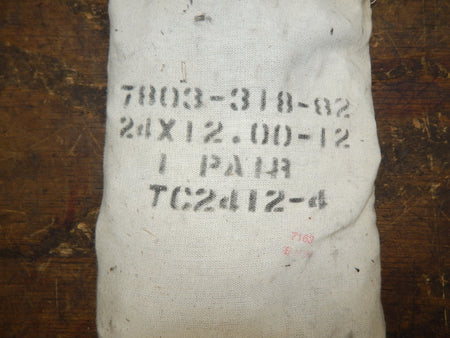 7803-318-82
24X12.00-12
1 PAIR
TC2412-4
7163